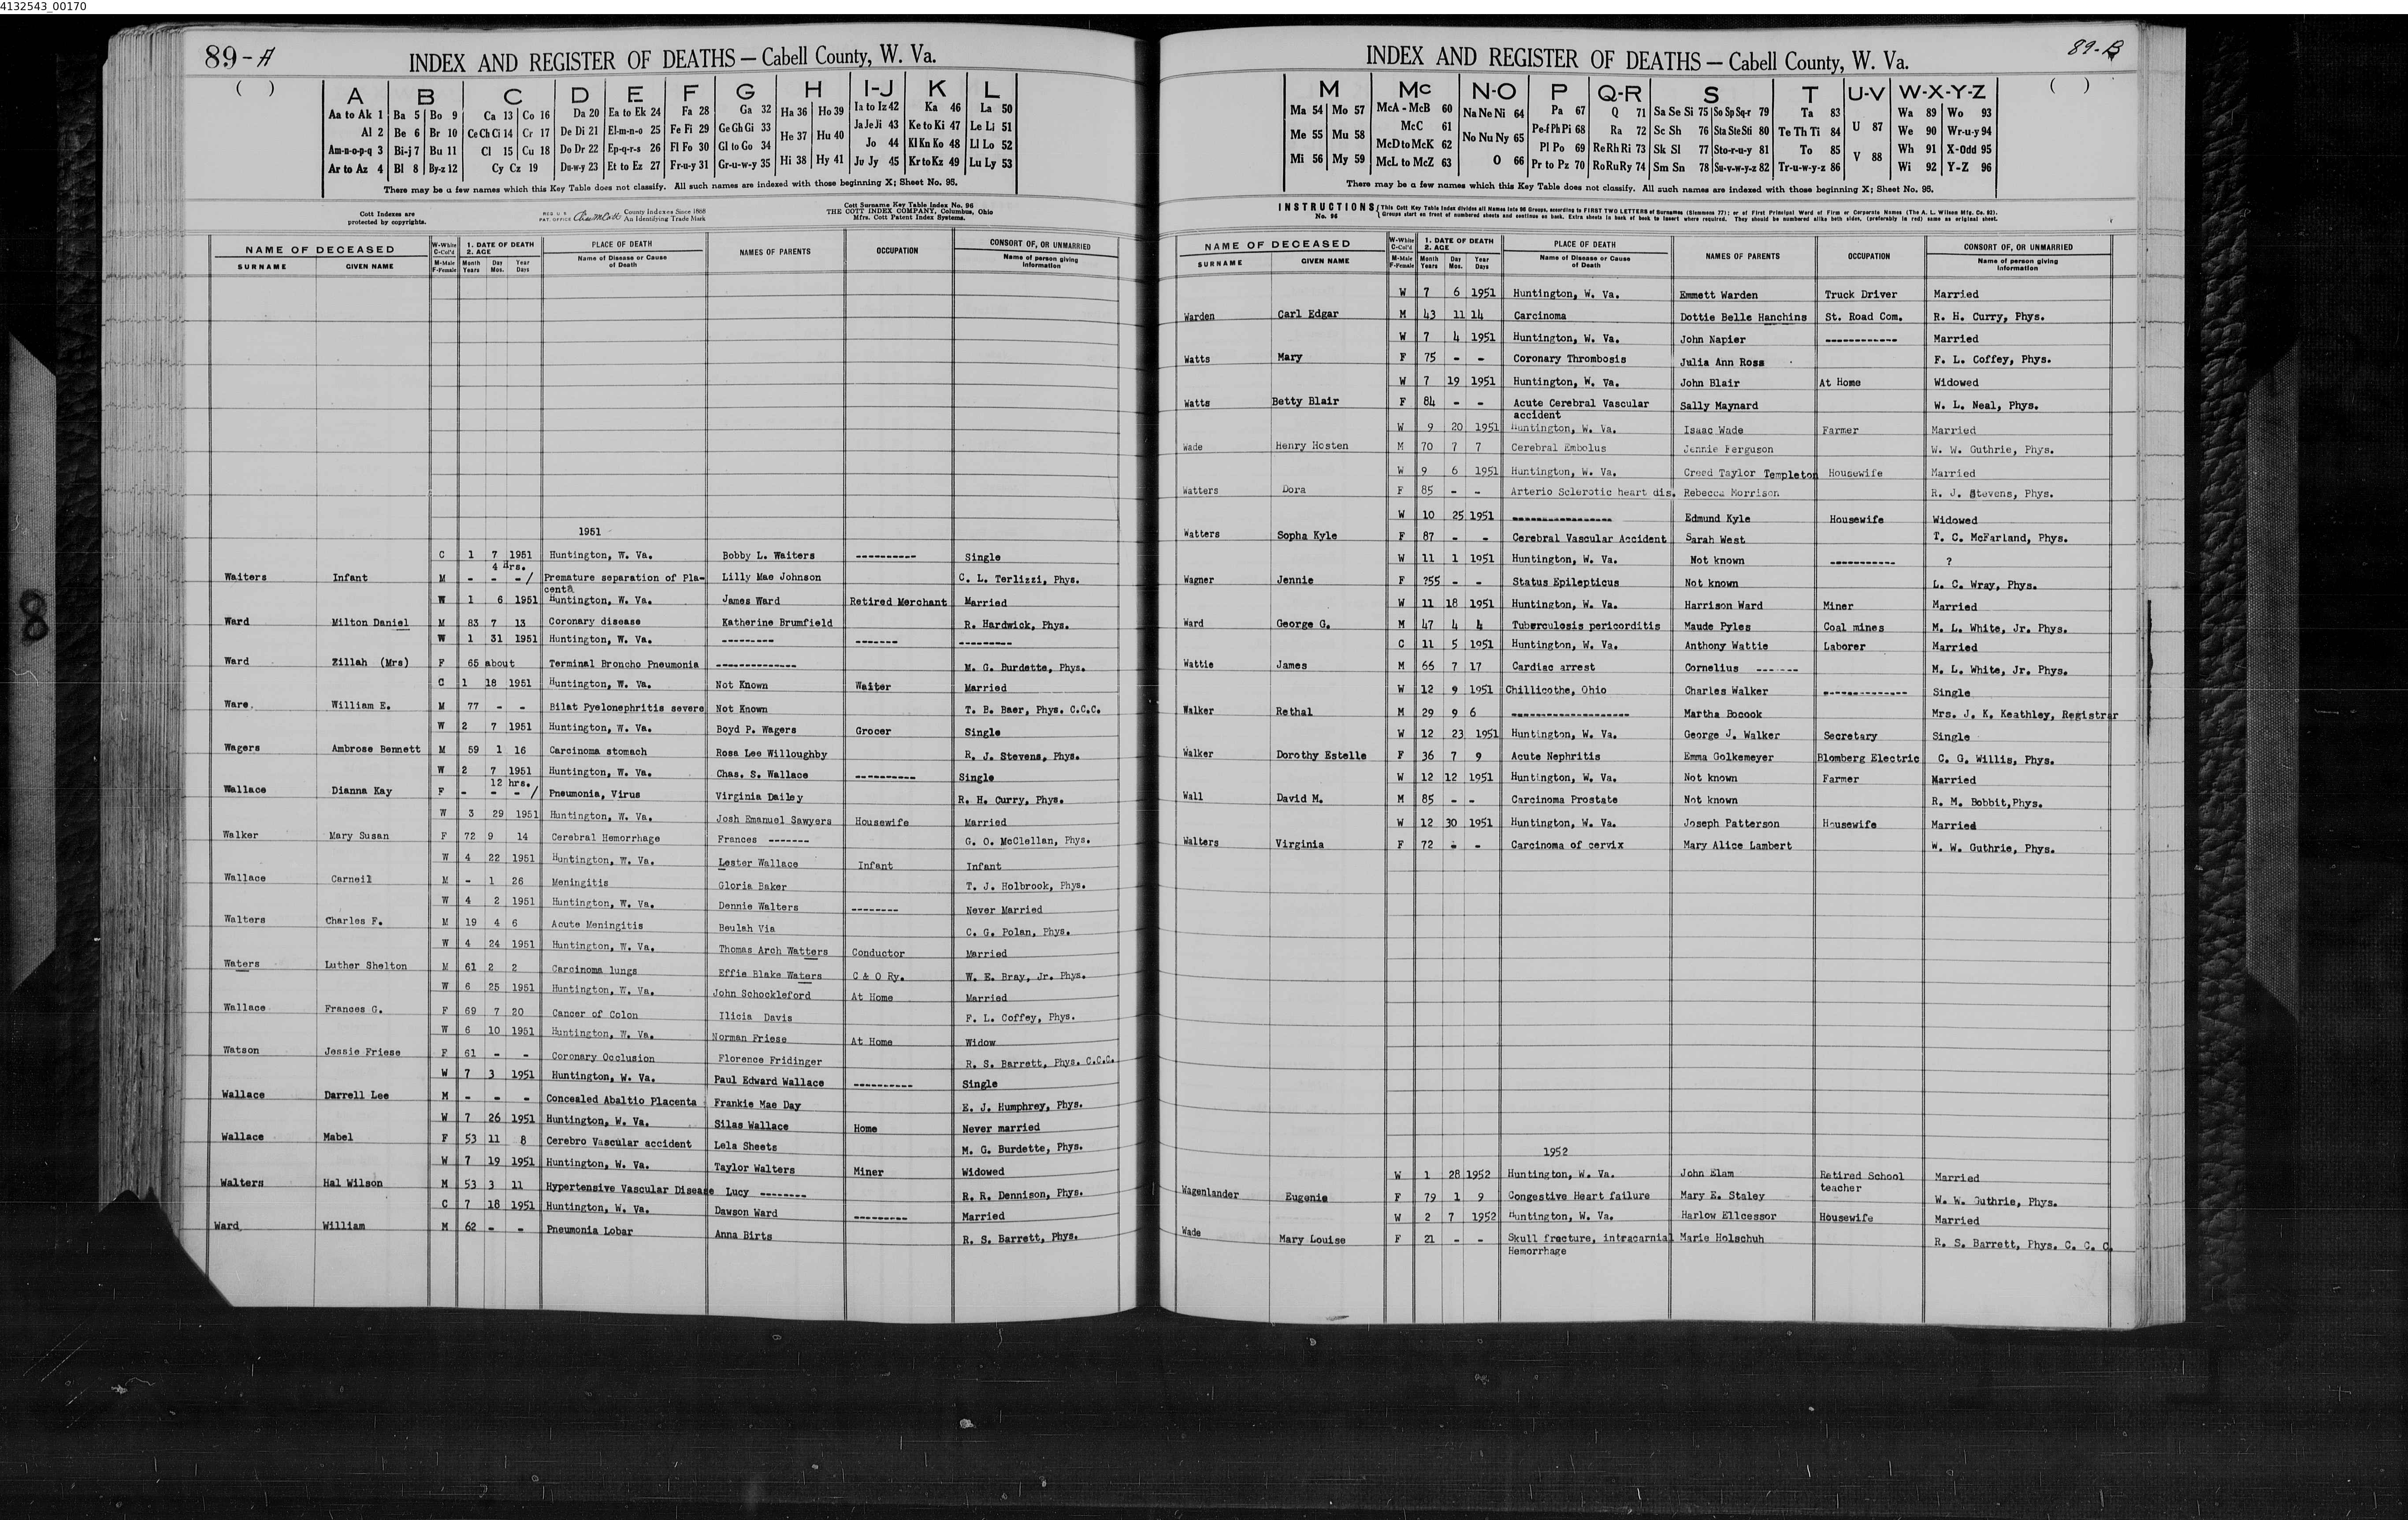 4132543_00170
89-A
INDEX AND REGISTER OF DEATHS — Cabell County, W. Va.
( )
A B C D E F G H I-J K L
Aa to Ak 1 Ba 5 Bo 9 Ca 13 Co 16 Da 20 Ea to Ek 24 Fa 28 Ga 32 Ha 36 Ho 39 Ia to Iz 42 Ka 46 La 50
Al 2 Be 6 Br 10 Ce Ch Ci 14 Cr 17 De Di 21 El-m-n-o 25 Fe Fi 29 Ge Gh Gi 33 He 37 Hu 40 Ja Je Ji 43 Ke to Ki 47 Le Li 51
Am-n-o-p-q 3 Bi-j 7 Bu 11 Cl 15 Cu 18 Do Dr 22 Ep-q-r-s 26 Fl Fo 30 Gl to Go 34 Hi 38 Hy 41 Jo 44 Kl Kn Ko 48 Ll Lo 52
Ar to Az 4 Bl 8 By-z 12 Cy Cz 19 Du-w-y 23 Et to Ez 27 Fr-u-y 31 Gr-u-w-y 35 Ju Jy 45 Kr to Kz 49 Lu Ly 53
There may be a few names which this Key Table does not classify. All such names are indexed with those beginning X; Sheet No. 95.
Cott Indexes are protected by copyrights.
REG. U. S. PAT. OFFICE County Indexes Since 1868 An Identifying Trade Mark
Cott Surname Key Table Index No. 96
THE COTT INDEX COMPANY, Columbus, Ohio
Mfrs. Cott Patent Index Systems.
NAME OF DECEASED W-White C-Col'd 1. DATE OF DEATH 2. AGE PLACE OF DEATH NAMES OF PARENTS OCCUPATION CONSORT OF, OR UNMARRIED
SURNAME GIVEN NAME M-Male F-Female Month Years Day Mos. Year Days Name of Disease or Cause of Death Name of person giving information
1951
C 1 7 1951 Huntington, W. Va. Bobby L. Waiters ---------- Single
4 Hrs.
Waiters Infant M - - -/ Premature separation of Pla- Lilly Mae Johnson C. L. Terlizzi, Phys.
centa
W 1 6 1951 Huntington, W. Va. James Ward Retired Merchant Married
Ward Milton Daniel M 83 7 13 Coronary disease Katherine Brumfield R. Hardwick, Phys.
W 1 31 1951 Huntington, W. Va. --------- ------- ---------
Ward Zillah (Mrs) F 65 about Terminal Broncho Pneumonia -------------- M. G. Burdette, Phys.
C 1 18 1951 Huntington, W. Va. Not Known Waiter Married
Ware. William E. M 77 - - Bilat Pyelonephritis severe Not Known T. B. Baer, Phys. C.C.C.
W 2 7 1951 Huntington, W. Va. Boyd P. Wagers Grocer Single
Wagers Ambrose Bennett M 59 1 16 Carcinoma stomach Rosa Lee Willoughby R. J. Stevens, Phys.
W 2 7 1951 Huntington, W. Va. Chas. S. Wallace ---------- Single
12 hrs.
Wallace Dianna Kay F - - -/ Pneumonia, Virus Virginia Dailey R. H. Curry, Phys.
W 3 29 1951 Huntington, W. Va. Josh Emanuel Sawyers Housewife Married
Walker Mary Susan F 72 9 14 Cerebral Hemorrhage Frances ------- G. O. McClellan, Phys.
W 4 22 1951 Huntington, W. Va. Lester Wallace Infant Infant
Wallace Carneil M - 1 26 Meningitis Gloria Baker T. J. Holbrook, Phys.
W 4 2 1951 Huntington, W. Va. Dennie Walters -------- Never Married
Walters Charles F. M 19 4 6 Acute Meningitis Beulah Via C. G. Polan, Phys.
W 4 24 1951 Huntington, W. Va. Thomas Arch Watters Conductor Married
Waters Luther Shelton M 61 2 2 Carcinoma lungs Effie Blake Waters C & O Ry. W. E. Bray, Jr. Phys.
W 6 25 1951 Huntington, W. Va. John Schockleford At Home Married
Wallace Frances G. F 69 7 20 Cancer of Colon Ilicia Davis F. L. Coffey, Phys.
W 6 10 1951 Huntington, W. Va. Norman Friese At Home Widow
Watson Jessie Friese F 61 - - Coronary Occlusion Florence Fridinger R. S. Barrett, Phys. C.C.C.
W 7 3 1951 Huntington, W. Va. Paul Edward Wallace ---------- Single
Wallace Darrell Lee M - - - Concealed Abaltio Placenta Frankie Mae Day E. J. Humphrey, Phys.
W 7 26 1951 Huntington, W. Va. Silas Wallace Home Never married
Wallace Mabel F 53 11 8 Cerebro Vascular accident Lela Sheets M. G. Burdette, Phys.
W 7 19 1951 Huntington, W. Va. Taylor Walters Miner Widowed
Walters Hal Wilson M 53 3 11 Hypertensive Vascular Disease Lucy -------- R. R. Dennison, Phys.
C 7 18 1951 Huntington, W. Va. Dawson Ward --------- Married
Ward William M 62 - - Pneumonia Lobar Anna Birts R. S. Barrett, Phys.
89-B
INDEX AND REGISTER OF DEATHS — Cabell County, W. Va.
( )
M Mc N-O P Q-R S T U-V W-X-Y-Z
Ma 54 Mo 57 McA - McB 60 Na Ne Ni 64 Pa 67 Q 71 Sa Se Si 75 So Sp Sq-r 79 Ta 83 U 87 Wa 89 Wo 93
Me 55 Mu 58 McC 61 No Nu Ny 65 Pe-f Ph Pi 68 Ra 72 Sc Sh 76 Sta Ste Sti 80 Te Th Ti 84 V 88 We 90 Wr-u-y 94
Mi 56 My 59 McD to McK 62 O 66 Pl Po 69 Re Rh Ri 73 Sk Sl 77 Sto-r-u-y 81 To 85 Wh 91 X-Odd 95
McL to McZ 63 Pr to Pz 70 Ro Ru Ry 74 Sm Sn 78 Su-v-w-y-z 82 Tr-u-w-y-z 86 Wi 92 Y-Z 96
There may be a few names which this Key Table does not classify. All such names are indexed with those beginning X; Sheet No. 95.
INSTRUCTIONS No. 96 This Cott Key Table Index divides all Names into 96 Groups, according to FIRST TWO LETTERS of Surnames (Slemmons 77); or of First Principal Word of Firm or Corporate Names (The A. L. Wilson Mfg. Co. 92).
Groups start on front of numbered sheets and continue on back. Extra sheets in back of book to insert where required. They should be numbered alike both sides, (preferably in red) same as original sheet.
NAME OF DECEASED W-White C-Col'd 1. DATE OF DEATH 2. AGE PLACE OF DEATH NAMES OF PARENTS OCCUPATION CONSORT OF, OR UNMARRIED
SURNAME GIVEN NAME M-Male F-Female Month Years Day Mos. Year Days Name of Disease or Cause of Death Name of person giving information
W 7 6 1951 Huntington, W. Va. Emmett Warden Truck Driver Married
Warden Carl Edgar M 43 11 14 Carcinoma Dottie Belle Hanchins St. Road Com. R. H. Curry, Phys.
W 7 4 1951 Huntington, W. Va. John Napier ------------ Married
Watts Mary F 75 - - Coronary Thrombosis Julia Ann Ross F. L. Coffey, Phys.
W 7 19 1951 Huntington, W. Va. John Blair At Home Widowed
Watts Betty Blair F 84 - - Acute Cerebral Vascular Sally Maynard W. L. Neal, Phys.
accident
W 9 20 1951 Huntington, W. Va. Isaac Wade Farmer Married
Wade Henry Hosten M 70 7 7 Cerebral Embolus Jennie Ferguson W. W. Guthrie, Phys.
W 9 6 1951 Huntington, W. Va. Creed Taylor Templeton Housewife Married
Watters Dora F 85 - - Arterio Sclerotic heart dis. Rebecca Morrison R. J. Stevens, Phys.
W 10 25 1951 ----------------- Edmund Kyle Housewife Widowed
Watters Sopha Kyle F 87 - - Cerebral Vascular Accident Sarah West T. C. McFarland, Phys.
W 11 1 1951 Huntington, W. Va. Not known ----------- ?
Wagner Jennie F ?55 - - Status Epilepticus Not known L. C. Wray, Phys.
W 11 18 1951 Huntington, W. Va. Harrison Ward Miner Married
Ward George G. M 47 4 4 Tuberculosis pericorditis Maude Pyles Coal mines M. L. White, Jr. Phys.
C 11 5 1951 Huntington, W. Va. Anthony Wattie Laborer Married
Wattie James M 66 7 17 Cardiac arrest Cornelius ------- M. L. White, Jr. Phys.
W 12 9 1951 Chillicothe, Ohio Charles Walker -------------- Single
Walker Rethal M 29 9 6 -------------------- Martha Bocook Mrs. J. K. Keathley, Registrar
W 12 23 1951 Huntington, W. Va. George J. Walker Secretary Single
Walker Dorothy Estelle F 36 7 9 Acute Nephritis Emma Golkemeyer Blomberg Electric C. G. Willis, Phys.
W 12 12 1951 Huntington, W. Va. Not known Farmer Married
Wall David M. M 85 - - Carcinoma Prostate Not known R. M. Bobbit,Phys.
W 12 30 1951 Huntington, W. Va. Joseph Patterson Housewife Married
Walters Virginia F 72 - - Carcinoma of cervix Mary Alice Lambert W. W. Guthrie, Phys.
1952
W 1 28 1952 Huntington, W. Va. John Elam Retired School Married
teacher
Wagenlander Eugenie F 79 1 9 Congestive Heart failure Mary E. Staley W. W. Guthrie, Phys.
W 2 7 1952 Huntington, W. Va. Harlow Ellcessor Housewife Married
Wade Mary Louise F 21 - - Skull fracture, intracarnial Marie Holschuh R. S. Barrett, Phys. C. C. C.
Hemorrhage
8